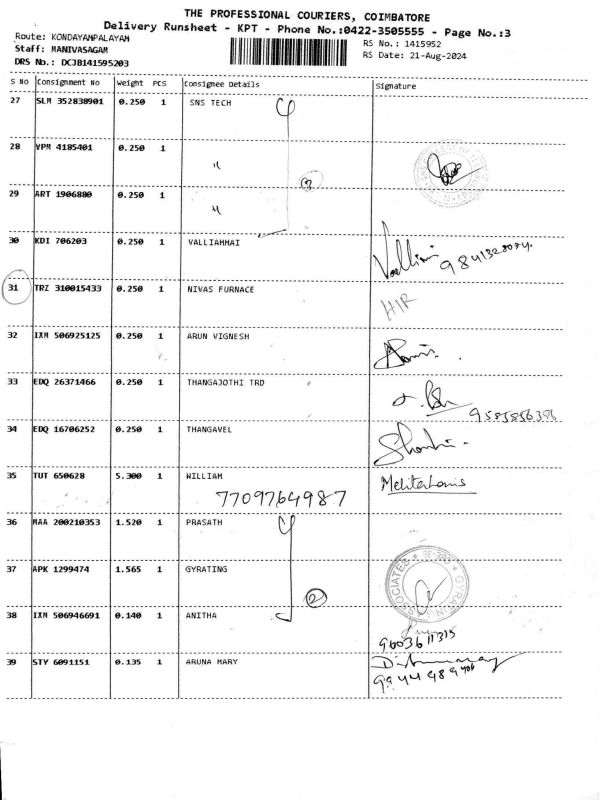 THE PROFESSIONAL COURIERS, COIMBATORE
Delivery Runsheet - KPT - Phone No.:0422-3505555 - Page No.:3
Route: KONDAYAMPALAYAM
RS No.: 1415952
Staff: MANIVASAGAM
RS Date: 21-Aug-2024
DRS No.: DCJB141595203
S No Consignment No Weight PCS Consignee Details Signature
27 SLM 352838901 0.250 1 SNS TECH
28 VPM 4185401 0.250 1 "
29 ART 1906880 0.250 1 "
30 KDI 706203 0.250 1 VALLIAMMAI
31 TRZ 310015433 0.250 1 NIVAS FURNACE
32 IXM 506925125 0.250 1 ARUN VIGNESH
33 EDQ 26371466 0.250 1 THANGAJOTHI TRD
34 EDQ 16706252 0.250 1 THANGAVEL
35 TUT 650628 5.300 1 WILLIAM
7709764987
36 MAA 200210353 1.520 1 PRASATH
37 APK 1299474 1.565 1 GYRATING
2
38 IXM 506946691 0.140 1 ANITHA
9603611315
39 STY 6091151 0.135 1 ARUNA MARY